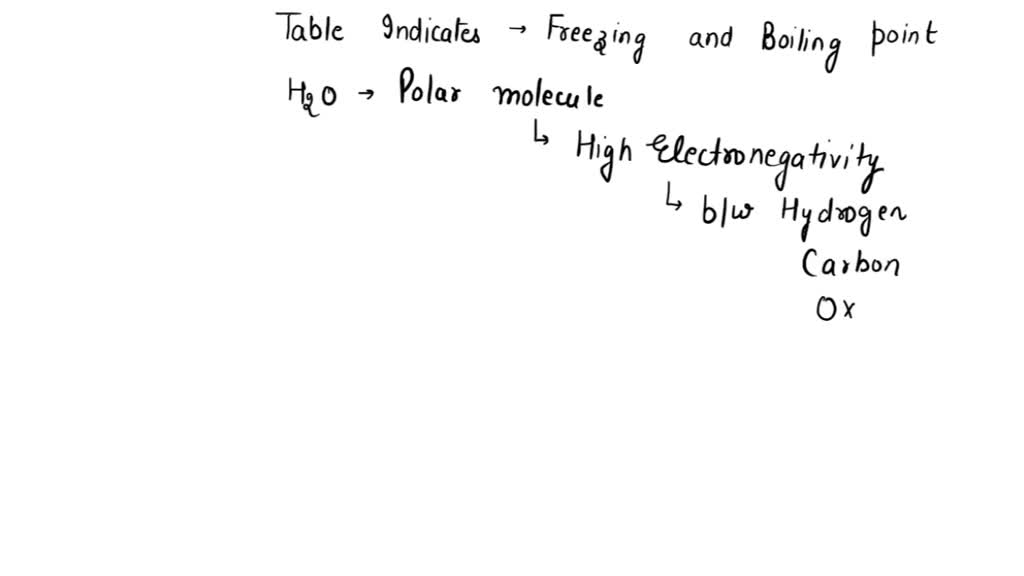 Table Indicates → Freezing and Boiling point
H2O → Polar molecule
↳ High Electronegativity
↳ b/w Hydrogen
Carbon
Ox